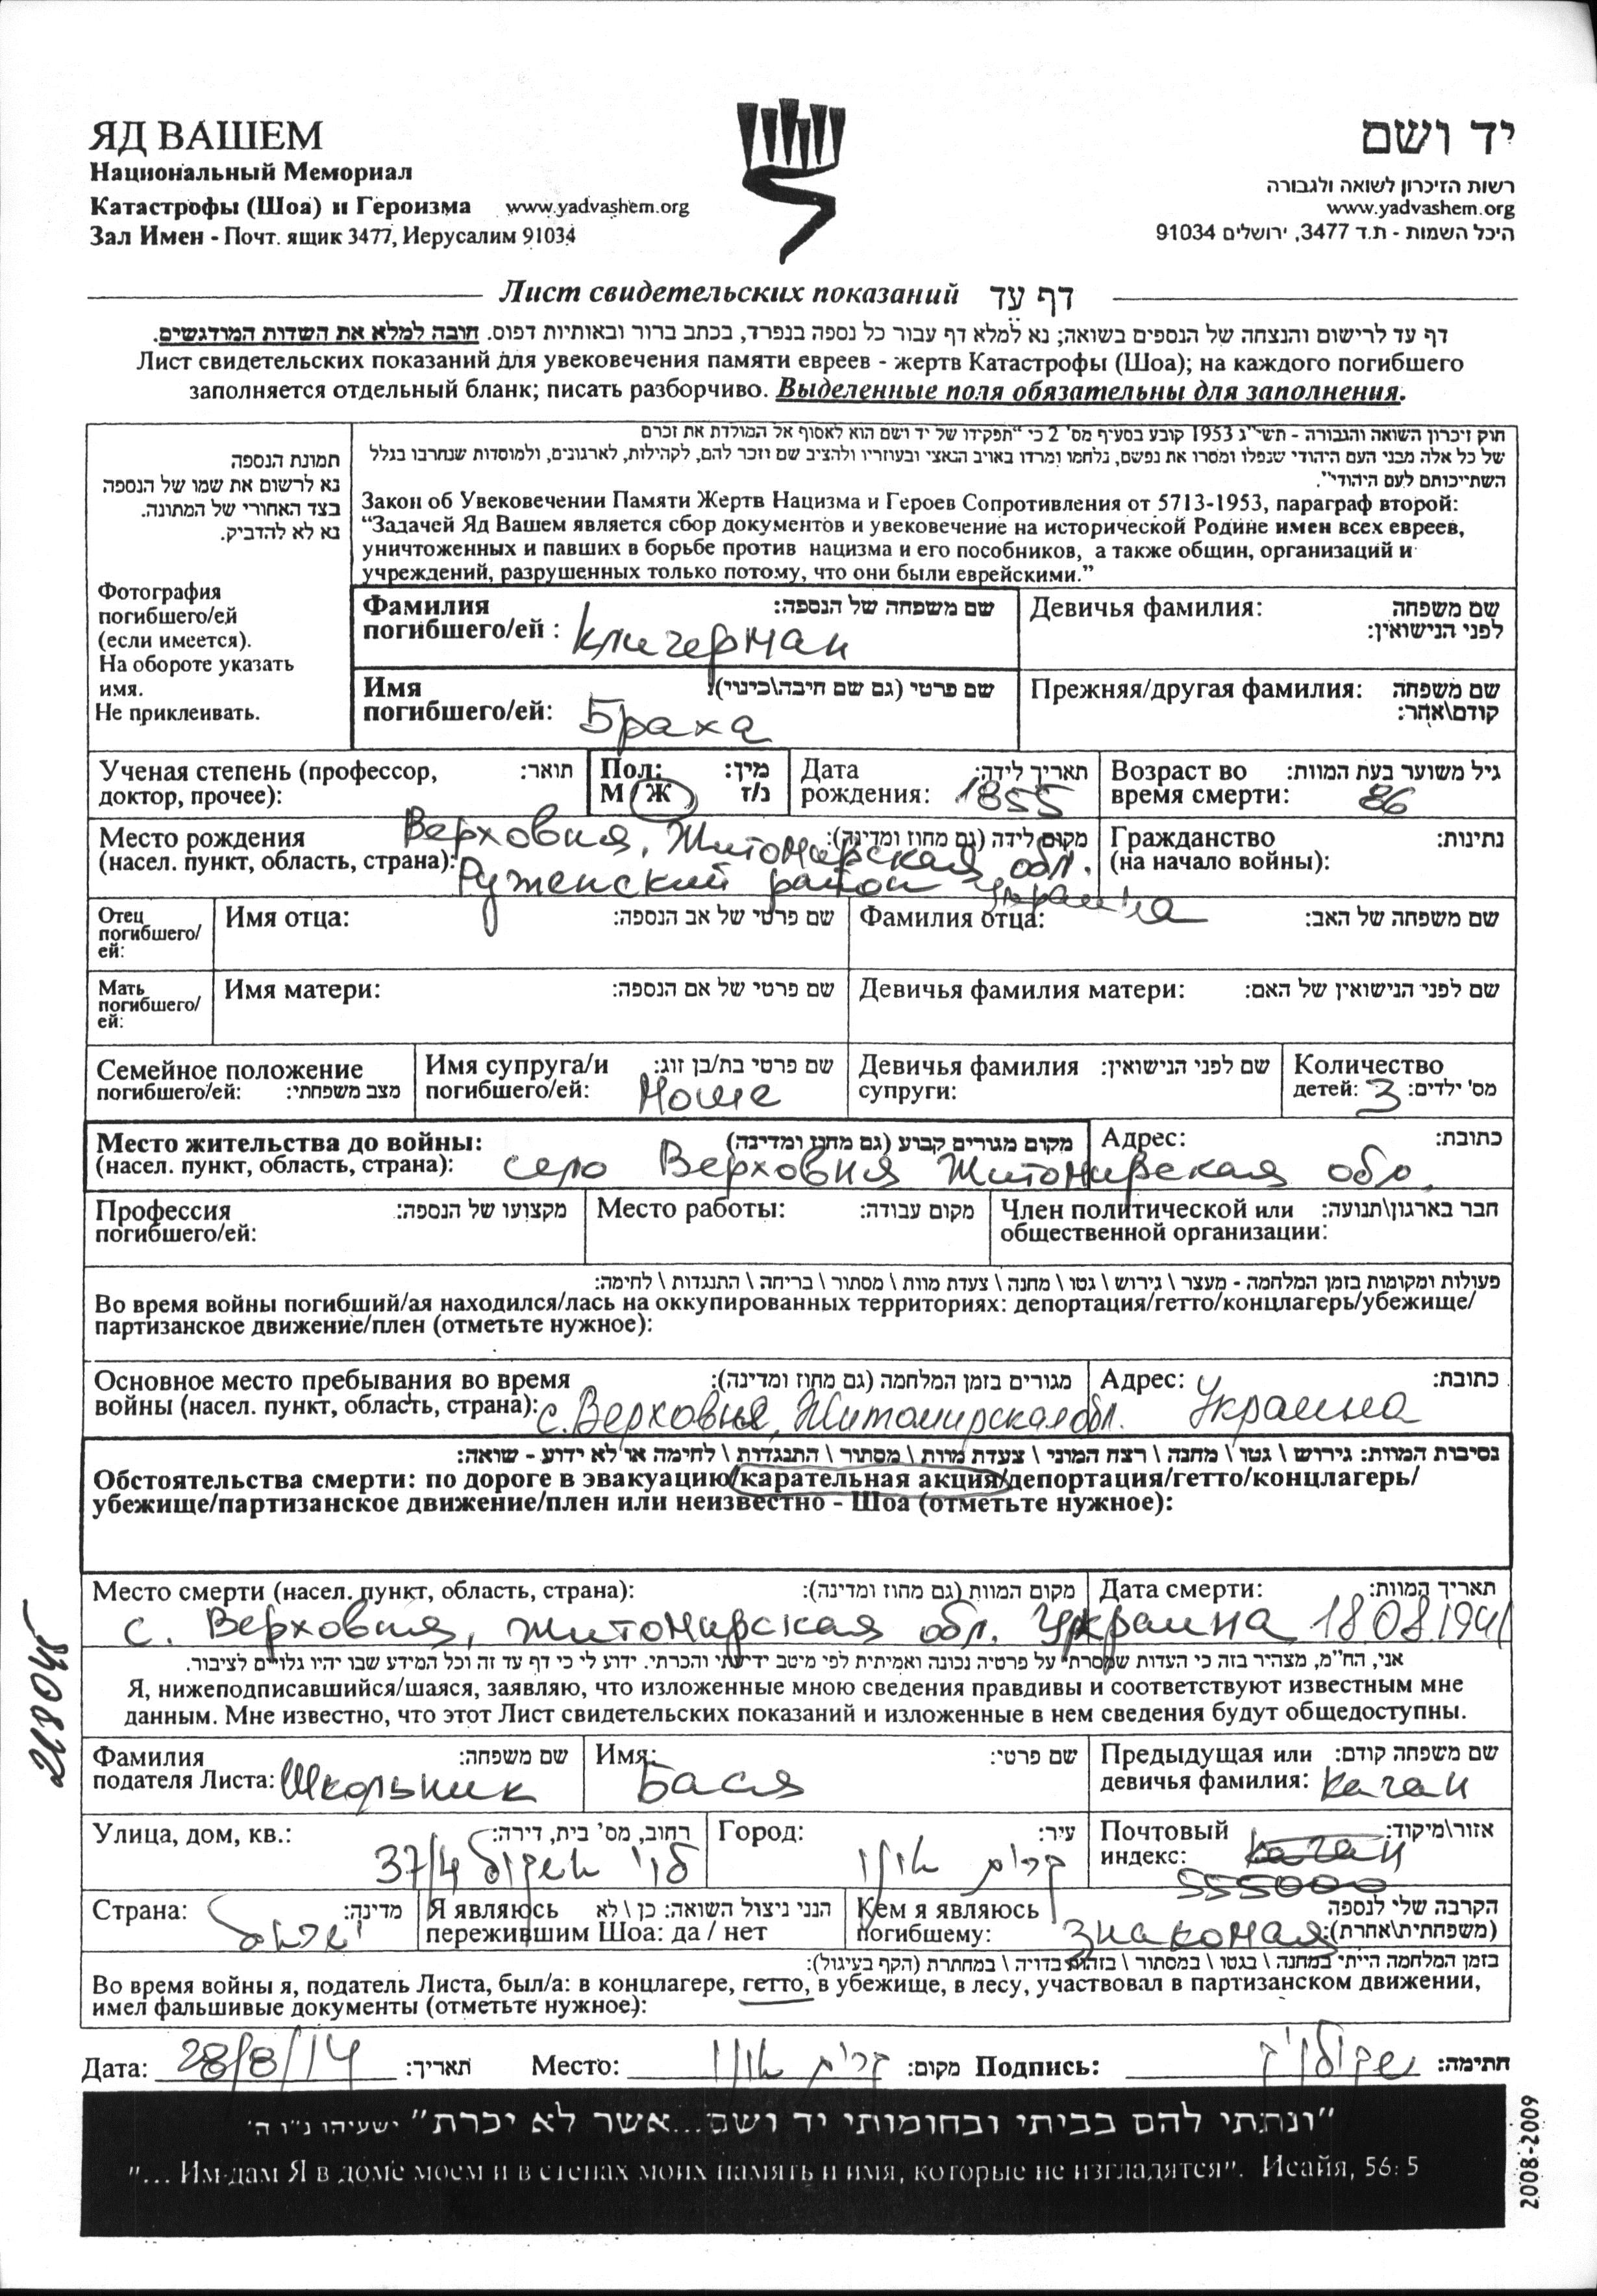 ЯД ВАШЕМ
Национальный Мемориал
Катастрофы (Шоа) и Героизма www.yadvashem.org
Зал Имен - Почт. ящик 3477, Иерусалим 91034
יד ושם
רשות הזיכרון לשואה ולגבורה
www.yadvashem.org
היכל השמות - ת.ד 3477, ירושלים 91034
Лист свидетельских показаний דף עד
דף עד לרישום והנצחה של הנספים בשואה; נא למלא דף עבור כל נספה בנפרד, בכתב ברור ובאותיות דפוס. חובה למלא את השדות המודגשים.
Лист свидетельских показаний для увековечения памяти евреев - жертв Катастрофы (Шоа); на каждого погибшего
заполняется отдельный бланк; писать разборчиво. Выделенные поля обязательны для заполнения.
תמונת הנספה
נא לרשום את שמו של הנספה
בצד האחורי של המתונה.
נא לא להדביק.
Фотография
погибшего/ей
(если имеется).
На обороте указать
имя.
Не приклеивать.
חוק זיכרון השואה והגבורה - תשי"ג 1953 קובע בסעיף מס' 2 כי "תפקידו של יד ושם הוא לאסוף אל המולדת את זכרם
של כל אלה מבני העם היהודי שנפלו ומסרו את נפשם, נלחמו ומרדו באויב הנאצי ובעוזריו ולהציב שם וזכר להם, לקהילות, לארגונים, ולמוסדות שנחרבו בגלל
השתייכותם לעם היהודי".
Закон об Увековечении Памяти Жертв Нацизма и Героев Сопротивления от 5713-1953, параграф второй:
“Задачей Яд Вашем является сбор документов и увековечение на исторической Родине имен всех евреев,
уничтоженных и павших в борьбе против нацизма и его пособников, а также общин, организаций и
учреждений, разрушенных только потому, что они были еврейскими.”
Фамилия שם משפחה של הנספה:
погибшего/ей : Кличерман
Девичья фамилия: שם משפחה
לפני הנישואין:
Имя שם פרטי (גם שם חיבה\כינוי):
погибшего/ей: Браха
Прежняя/другая фамилия: שם משפחה
קודם\אחר:
Ученая степень (профессор, תואר:
доктор, прочее):
Пол: מין:
М / Ж ז/נ
Дата תאריך לידה:
рождения: 1855
Возраст во גיל משוער בעת המוות:
время смерти: 86
Место рождения Верховня, Житомирская обл. מקום לידה (גם מחוז ומדינה):
(насел. пункт, область, страна): Руженский район Украина
Гражданство נתינות:
(на начало войны):
Отец
погибшего/
ей:
Имя отца: שם פרטי של אב הנספה:
Фамилия отца: שם משפחה של האב:
Мать
погибшего/
ей:
Имя матери: שם פרטי של אם הנספה:
Девичья фамилия матери: שם לפני הנישואין של האם:
Семейное положение
погибшего/ей: מצב משפחתי:
Имя супруга/и שם פרטי בת/בן זוג:
погибшего/ей: Моше
Девичья фамилия שם לפני הנישואין:
супруги:
Количество
детей: 3 מס' ילדים:
Место жительства до войны: מקום מגורים קבוע (גם מחוז ומדינה)
(насел. пункт, область, страна): село Верховня Житомирская обл.
Адрес: כתובת:
Профессия מקצועו של הנספה:
погибшего/ей:
Место работы: מקום עבודה:
Член политической или חבר בארגון\תנועה:
общественной организации:
פעולות ומקומות בזמן המלחמה - מעצר \ גירוש \ גטו \ מחנה \ צעדת מוות \ מסתור \ בריחה \ התנגדות \ לחימה:
Во время войны погибший/ая находился/лась на оккупированных территориях: депортация/гетто/концлагерь/убежище/
партизанское движение/плен (отметьте нужное):
Основное место пребывания во время מגורים בזמן המלחמה (גם מחוז ומדינה):
войны (насел. пункт, область, страна): с. Верховня, Житомирская обл.
Адрес: Украина כתובת:
נסיבות המוות: גירוש \ גטו \ מחנה \ רצח המוני \ צעדת מוות \ מסתור \ התנגדות \ לחימה או לא ידוע - שואה:
Обстоятельства смерти: по дороге в эвакуацию/карательная акция/депортация/гетто/концлагерь/
убежище/партизанское движение/плен или неизвестно - Шоа (отметьте нужное):
Место смерти (насел. пункт, область, страна): מקום המוות (גם מחוז ומדינה):
с. Верховня, Житомирская обл. Украина
Дата смерти: תאריך המוות:
18.08.1941
אני, הח"מ, מצהיר בזה כי העדות שמסרתי על פרטיה נכונה ואמיתית לפי מיטב ידיעתי והכרתי. ידוע לי כי דף עד זה וכל המידע שבו יהיו גלויים לציבור.
Я, нижеподписавшийся/шаяся, заявляю, что изложенные мною сведения правдивы и соответствуют известным мне
данным. Мне известно, что этот Лист свидетельских показаний и изложенные в нем сведения будут общедоступны.
Фамилия שם משפחה:
подателя Листа: Школьник
Имя: שם פרטי:
Бася
Предыдущая или שם משפחה קודם:
девичья фамилия: Каган
Улица, дом, кв.: רחוב, מס' בית, דירה:
לוי אשכול 37/4
Город: עיר:
קרית אונו
Почтовый אזור\מיקוד:
индекс: Каган
555000
Страна: מדינה:
ישראל
Я являюсь הנני ניצול השואה: כן \ לא
пережившим Шоа: да / нет
Кем я являюсь הקרבה שלי לנספה
погибшему: знакомая (משפחתית\אחרת):
בזמן המלחמה הייתי במחנה \ בגטו \ במסתור \ בזהות בדויה \ במחתרת (הקף בעיגול):
Во время войны я, податель Листа, был/а: в концлагере, гетто, в убежище, в лесу, участвовал в партизанском движении,
имел фальшивые документы (отметьте нужное):
Дата: 28/8/14 תאריך: Место: קרית אונו מקום: Подпись: שקולניק חתימה:
"ונתתי להם בביתי ובחומותי יד ושם...אשר לא יכרת" ישעיהו נ"ו ה'
"... Им дам Я в доме моем и в стенах моих память и имя, которые не изгладятся". Исайя, 56: 5
218045
2008-2009